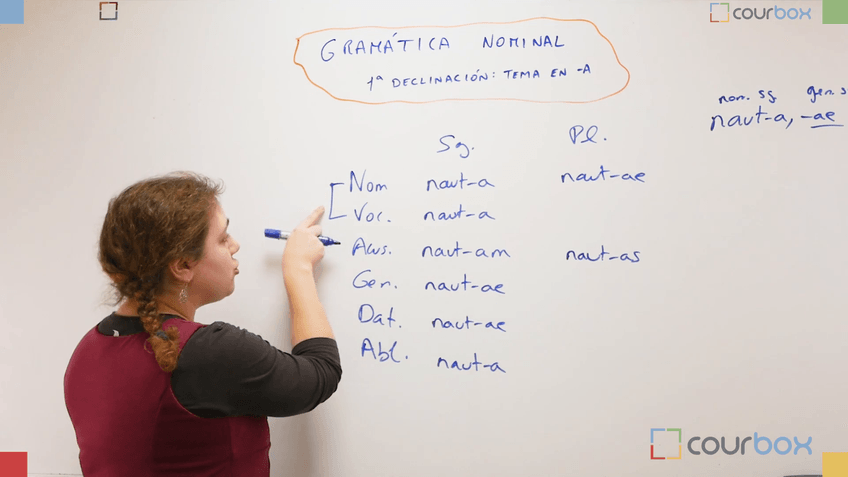 courbox
GRAMÁTICA NOMINAL
1ª DECLINACIÓN: TEMA EN -A
nom. sg gen. s
naut-a, -ae
Sg. Pl.
Nom naut-a naut-ae
Voc. naut-a
Acus. naut-am naut-as
Gen. naut-ae
Dat. naut-ae
Abl. naut-a
courbox